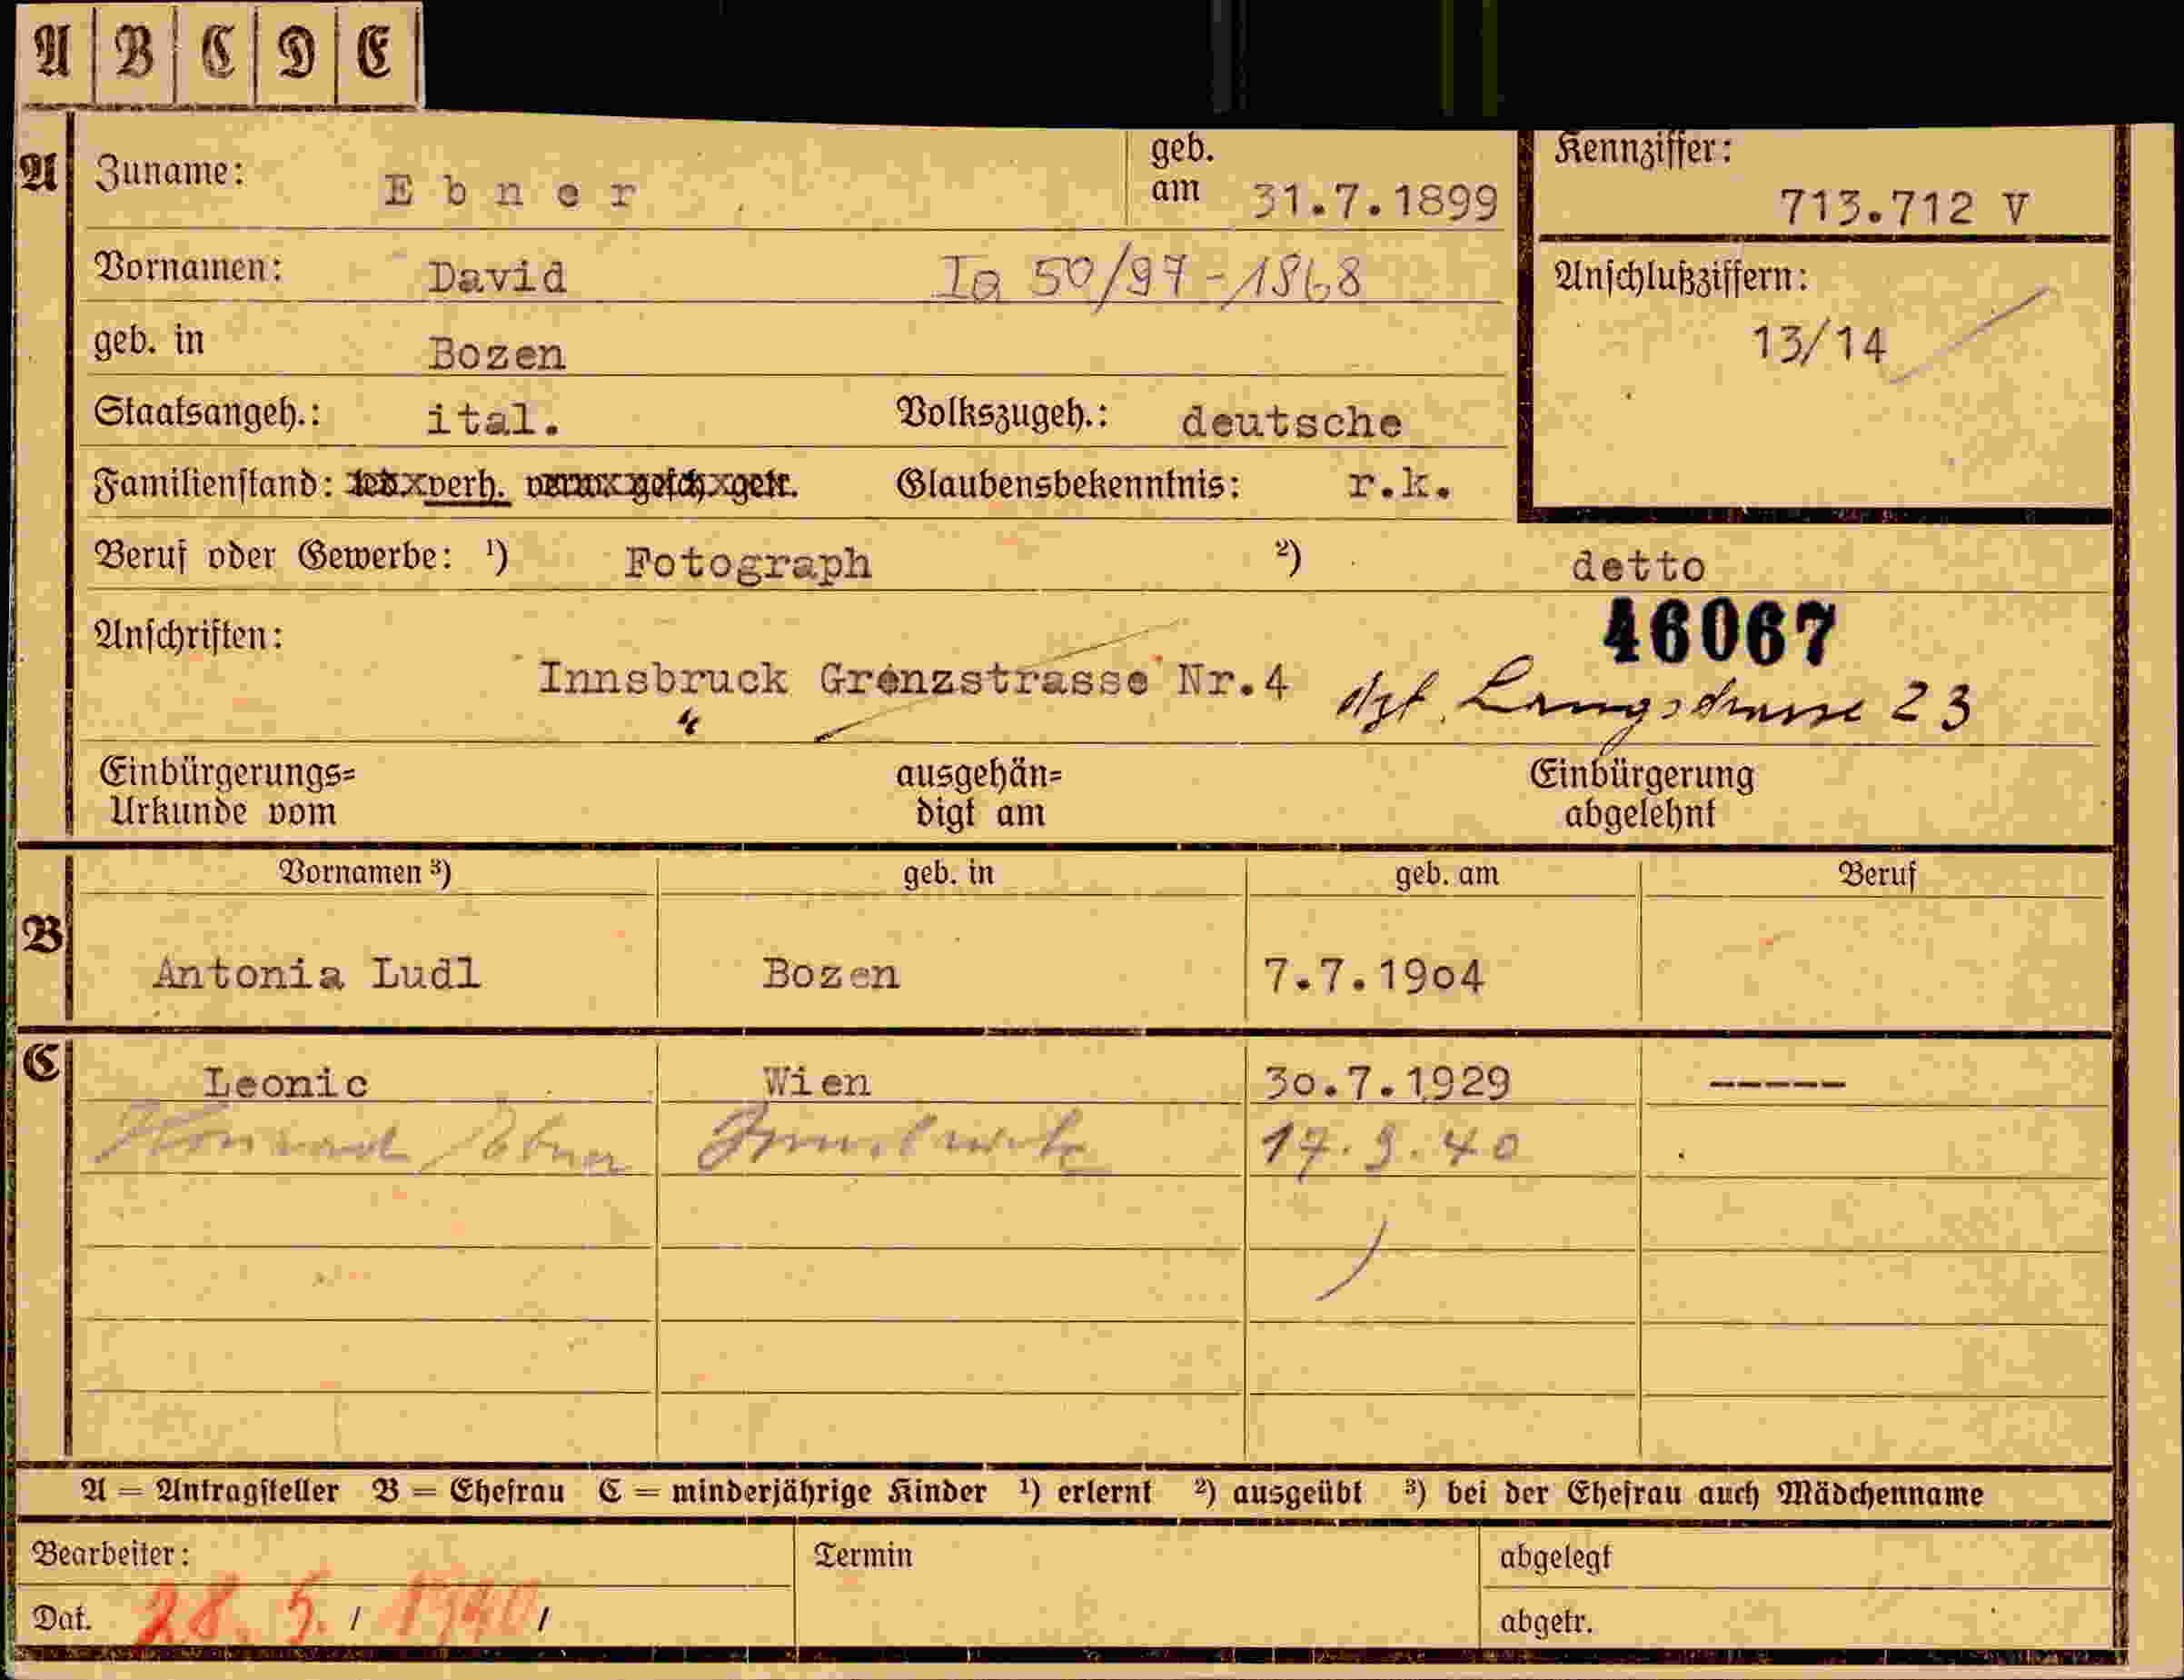 A B C D E
A Zuname: Ebner geb. am 31.7.1899
Kennziffer: 713.712 V
Vornamen: David Ia 50/97-1868
Anschlußziffern: 13/14
geb. in Bozen
Staatsangeh.: ital. Volkszugeh.: deutsche
Familienstand: led. verh. verw. gesch. getr. Glaubensbekenntnis: r.k.
Beruf oder Gewerbe: ¹) Fotograph ²) detto
46067
Anschriften: Innsbruck Grenzstrasse Nr.4
" dzt. Langstrasse 23
Einbürgerungs= ausgehän= Einbürgerung
Urkunde vom digt am abgelehnt
Vornamen ³) geb. in geb. am Beruf
B Antonia Ludl Bozen 7.7.1904
C Leonic Wien 30.7.1929 -----
Konrad Ebner Innsbruck 17.3.40
A = Antragsteller B = Ehefrau C = minderjährige Kinder ¹) erlernt ²) ausgeübt ³) bei der Ehefrau auch Mädchenname
Bearbeiter: Termin abgelegt
Dat. 28. 5. / 1940 / abgetr.